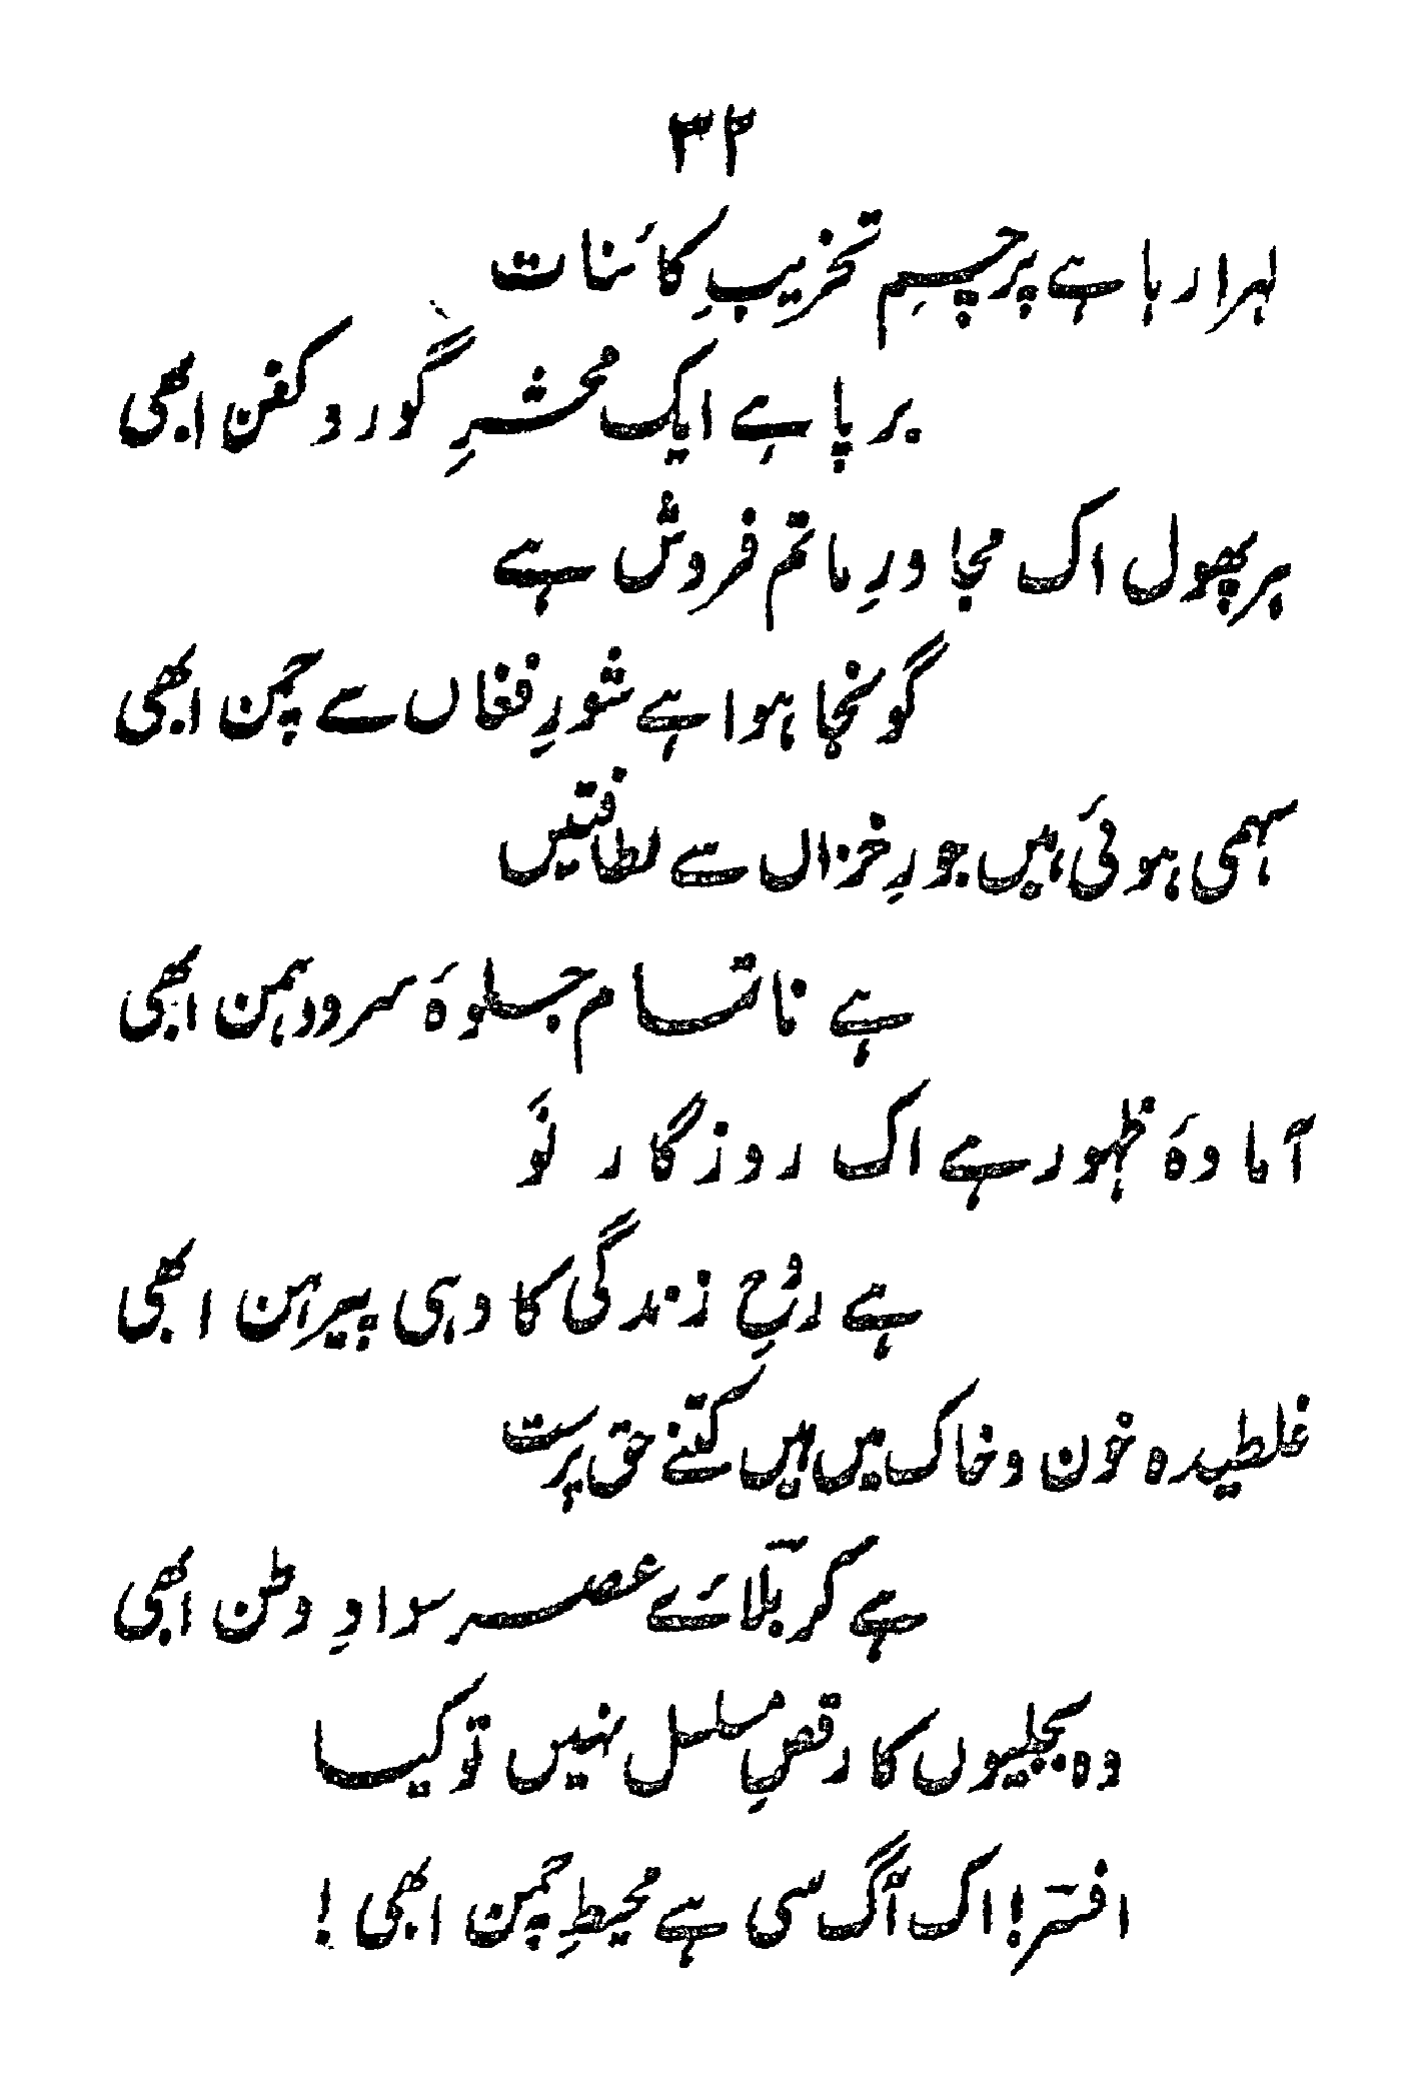 ۳۲
لہرا رہا ہے پرچمِ تخریبِ کائنات
برپا ہے ایک محشرِ گور و کفن ابھی
ہر پھول اک مجاورِ ماتم فروش ہے
گونجا ہوا ہے شورِ فغاں سے چمن ابھی
سہمی ہوئی ہیں جورِ خزاں سے لطافتیں
ہے ناتمام جلوۂ سرود ہمن ابھی
آمادۂ ظہور ہے اک روزگار نَو
ہے رُوحِ زندگی کا وہی پیرہن ابھی
غلطیدہ خون و خاک میں ہیں کتنے حق پرست
ہے کربلائے عصر سوادِ وطن ابھی
وہ بجلیوں کا رقصِ مسلسل نہیں تو کیا
افسر! اک آگ سی ہے محیطِ چمن ابھی!